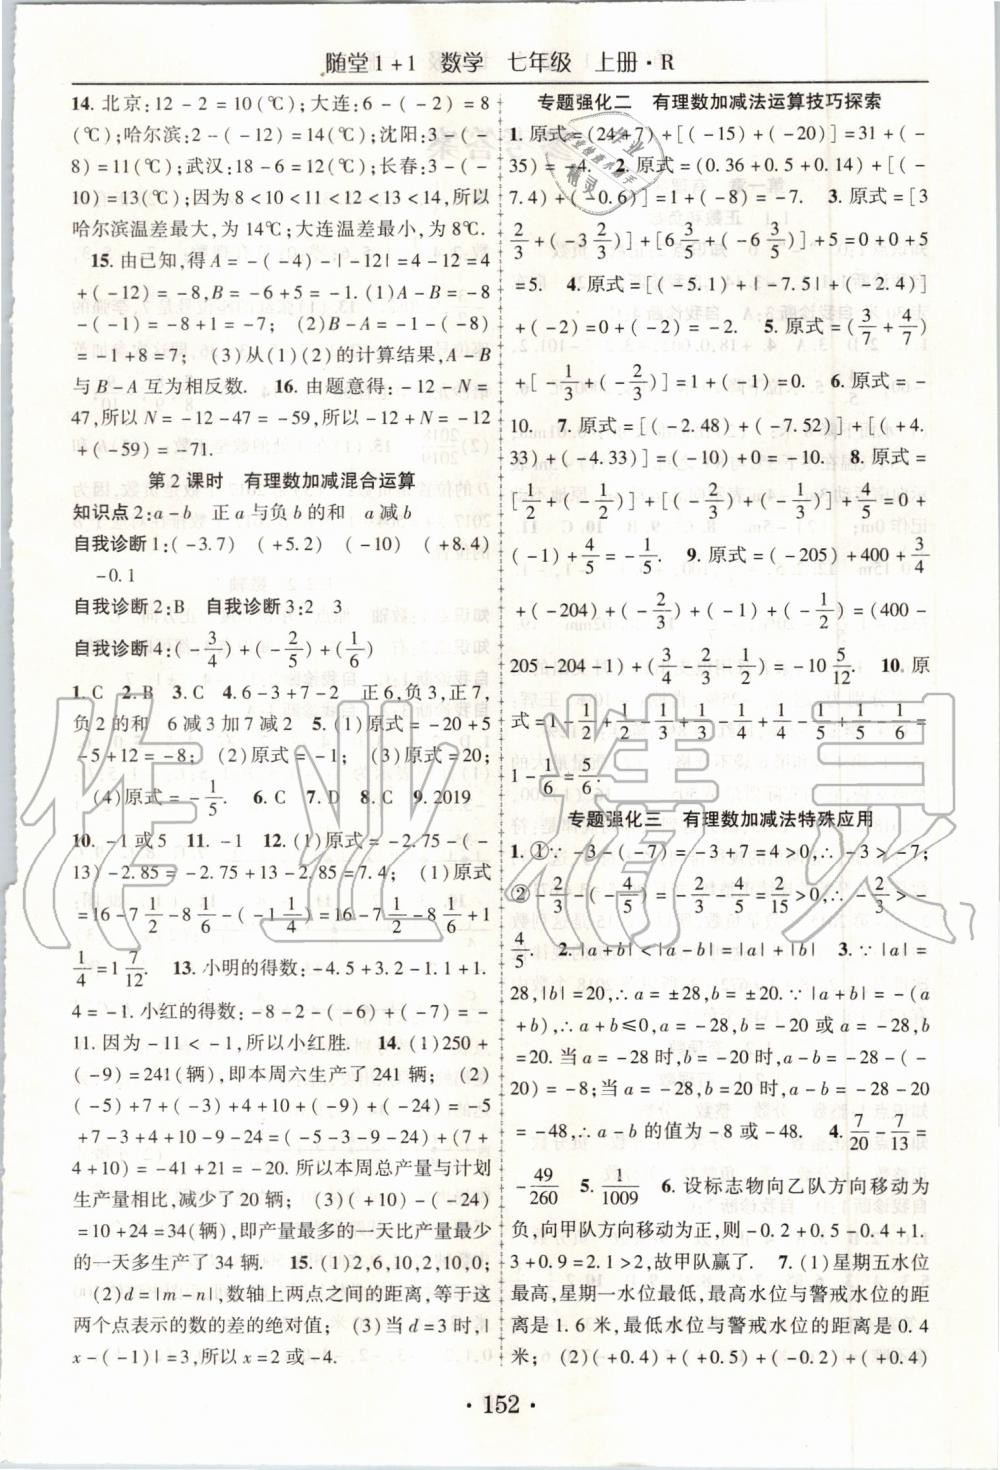 随堂1+1 数学 七年级 上册·R
14. 北京:12-2=10(℃);大连:6-(-2)=8
(℃);哈尔滨:2-(-12)=14(℃);沈阳:3-(-
8)=11(℃);武汉:18-7=11(℃);长春:3-(-
10)=13(℃);因为8<10<11<12<13<14,所以
哈尔滨温差最大,为14℃;大连温差最小,为8℃.
15. 由已知,得A=-(-4)-|-12|=4-12=4
+(-12)=-8,B=-6+5=-1.(1)A-B=-8
-(-1)=-8+1=-7; (2)B-A=-1-(-8)
=-1+8=7; (3)从(1)(2)的计算结果,A-B
与B-A互为相反数. 16. 由题意得:-12-N=
47,所以N=-12-47=-59,所以-12+N=-12
+(-59)=-71.
第2课时 有理数加减混合运算
知识点2:a-b 正a与负b的和 a减b
自我诊断1:(-3.7) (+5.2) (-10) (+8.4)
-0.1
自我诊断2:B 自我诊断3:2 3
自我诊断4:(-3/4)+(-2/5)+(1/6)
1. C 2. B 3. C 4. 6-3+7-2 正6,负3,正7,
负2的和 6减3加7减2 5. (1)原式=-20+5
-5+12=-8; (2)原式=-1; (3)原式=20;
(4)原式=-1/5. 6. C 7. D 8. C 9. 2019
10. -1或5 11. -1 12. (1)原式=-2.75-(-
13)-2.85=-2.75+13-2.85=7.4; (1)原式
=16-7 1/2-8 1/6-(-1 1/4)=16-7 1/2-8 1/6+1
1/4=1 7/12. 13. 小明的得数:-4.5+3.2-1.1+1.
4=-1. 小红的得数:-8-2-(-6)+(-7)=-
11.因为-11<-1,所以小红胜. 14. (1)250+
(-9)=241(辆),即本周六生产了241辆; (2)
(-5)+7+(-3)+4+10+(-9)+(-24)=-5
+7-3+4+10-9-24=(-5-3-9-24)+(7+
4+10)=-41+21=-20.所以本周总产量与计划
生产量相比,减少了20辆; (3)(+10)-(-24)
=10+24=34(辆),即产量最多的一天比产量最少
的一天多生产了34辆. 15. (1)2,6,10,2,10,0;
(2)d=|m-n|,数轴上两点之间的距离,等于这
两个点表示的数的差的绝对值; (3)当d=3时,|
x-(-1)|=3,所以x=2或-4.
专题强化二 有理数加减法运算技巧探索
1. 原式=(24+7)+[(-15)+(-20)]=31+(-
35)=-4. 2. 原式=(0.36+0.5+0.14)+[(-
7.4)+(-0.6)]=1+(-8)=-7. 3. 原式=[3
2/3+(-3 2/3)]+[6 3/5+(-6 3/5)]+5=0+0+5
=5. 4. 原式=[(-5.1)+|-7.5|+(-2.4)]
+(-2)=0+(-2)=-2. 5. 原式=(3/7+4/7)
+[-1/3+(-2/3)]=1+(-1)=0. 6. 原式=-
10. 7. 原式=[(-2.48)+(-7.52)]+[(+4.
33)+(-4.33)]=(-10)+0=-10. 8. 原式=
[1/2+(-1/2)]+[(-2/5)+(-3/5)]+4/5=0+
(-1)+4/5=-1/5. 9. 原式=(-205)+400+3/4
+(-204)+(-2/3)+(-1)+(-1/2)=(400-
205-204-1)+(3/4-2/3-1/2)=-10 5/12. 10. 原
式=1-1/2+1/2-1/3+1/3-1/4+1/4-1/5+1/5-1/6=
1-1/6=5/6.
专题强化三 有理数加减法特殊应用
1. ①∵-3-(-7)=-3+7=4>0,∴-3>-7;
②-2/3-(-4/5)=-2/3+4/5=2/15>0,∴-2/3>-
4/5. 2. |a+b|<|a-b|=|a|+|b| 3. ∵|a|=
28,|b|=20,∴a=±28,b=±20.∵|a+b|=-(a
+b),∴a+b≤0,a=-28,b=-20或a=-28,b
=20.当a=-28时,b=-20时,a-b=-28-(-
20)=-8;当a=-28,b=20时,a-b=-28-20
=-48,∴a-b的值为-8或-48. 4. 7/20-7/13=
-49/260 5. 1/1009 6. 设标志物向乙队方向移动为
负,向甲队方向移动为正,则-0.2+0.5-0.4+1.
3+0.9=2.1>2,故甲队赢了. 7. (1)星期五水位
最高,星期一水位最低,最高水位与警戒水位的距
离是1.6米,最低水位与警戒水位的距离是0.4
米; (2)(+0.4)+(+0.5)+(-0.2)+(+0.4)
·152·
作业精灵